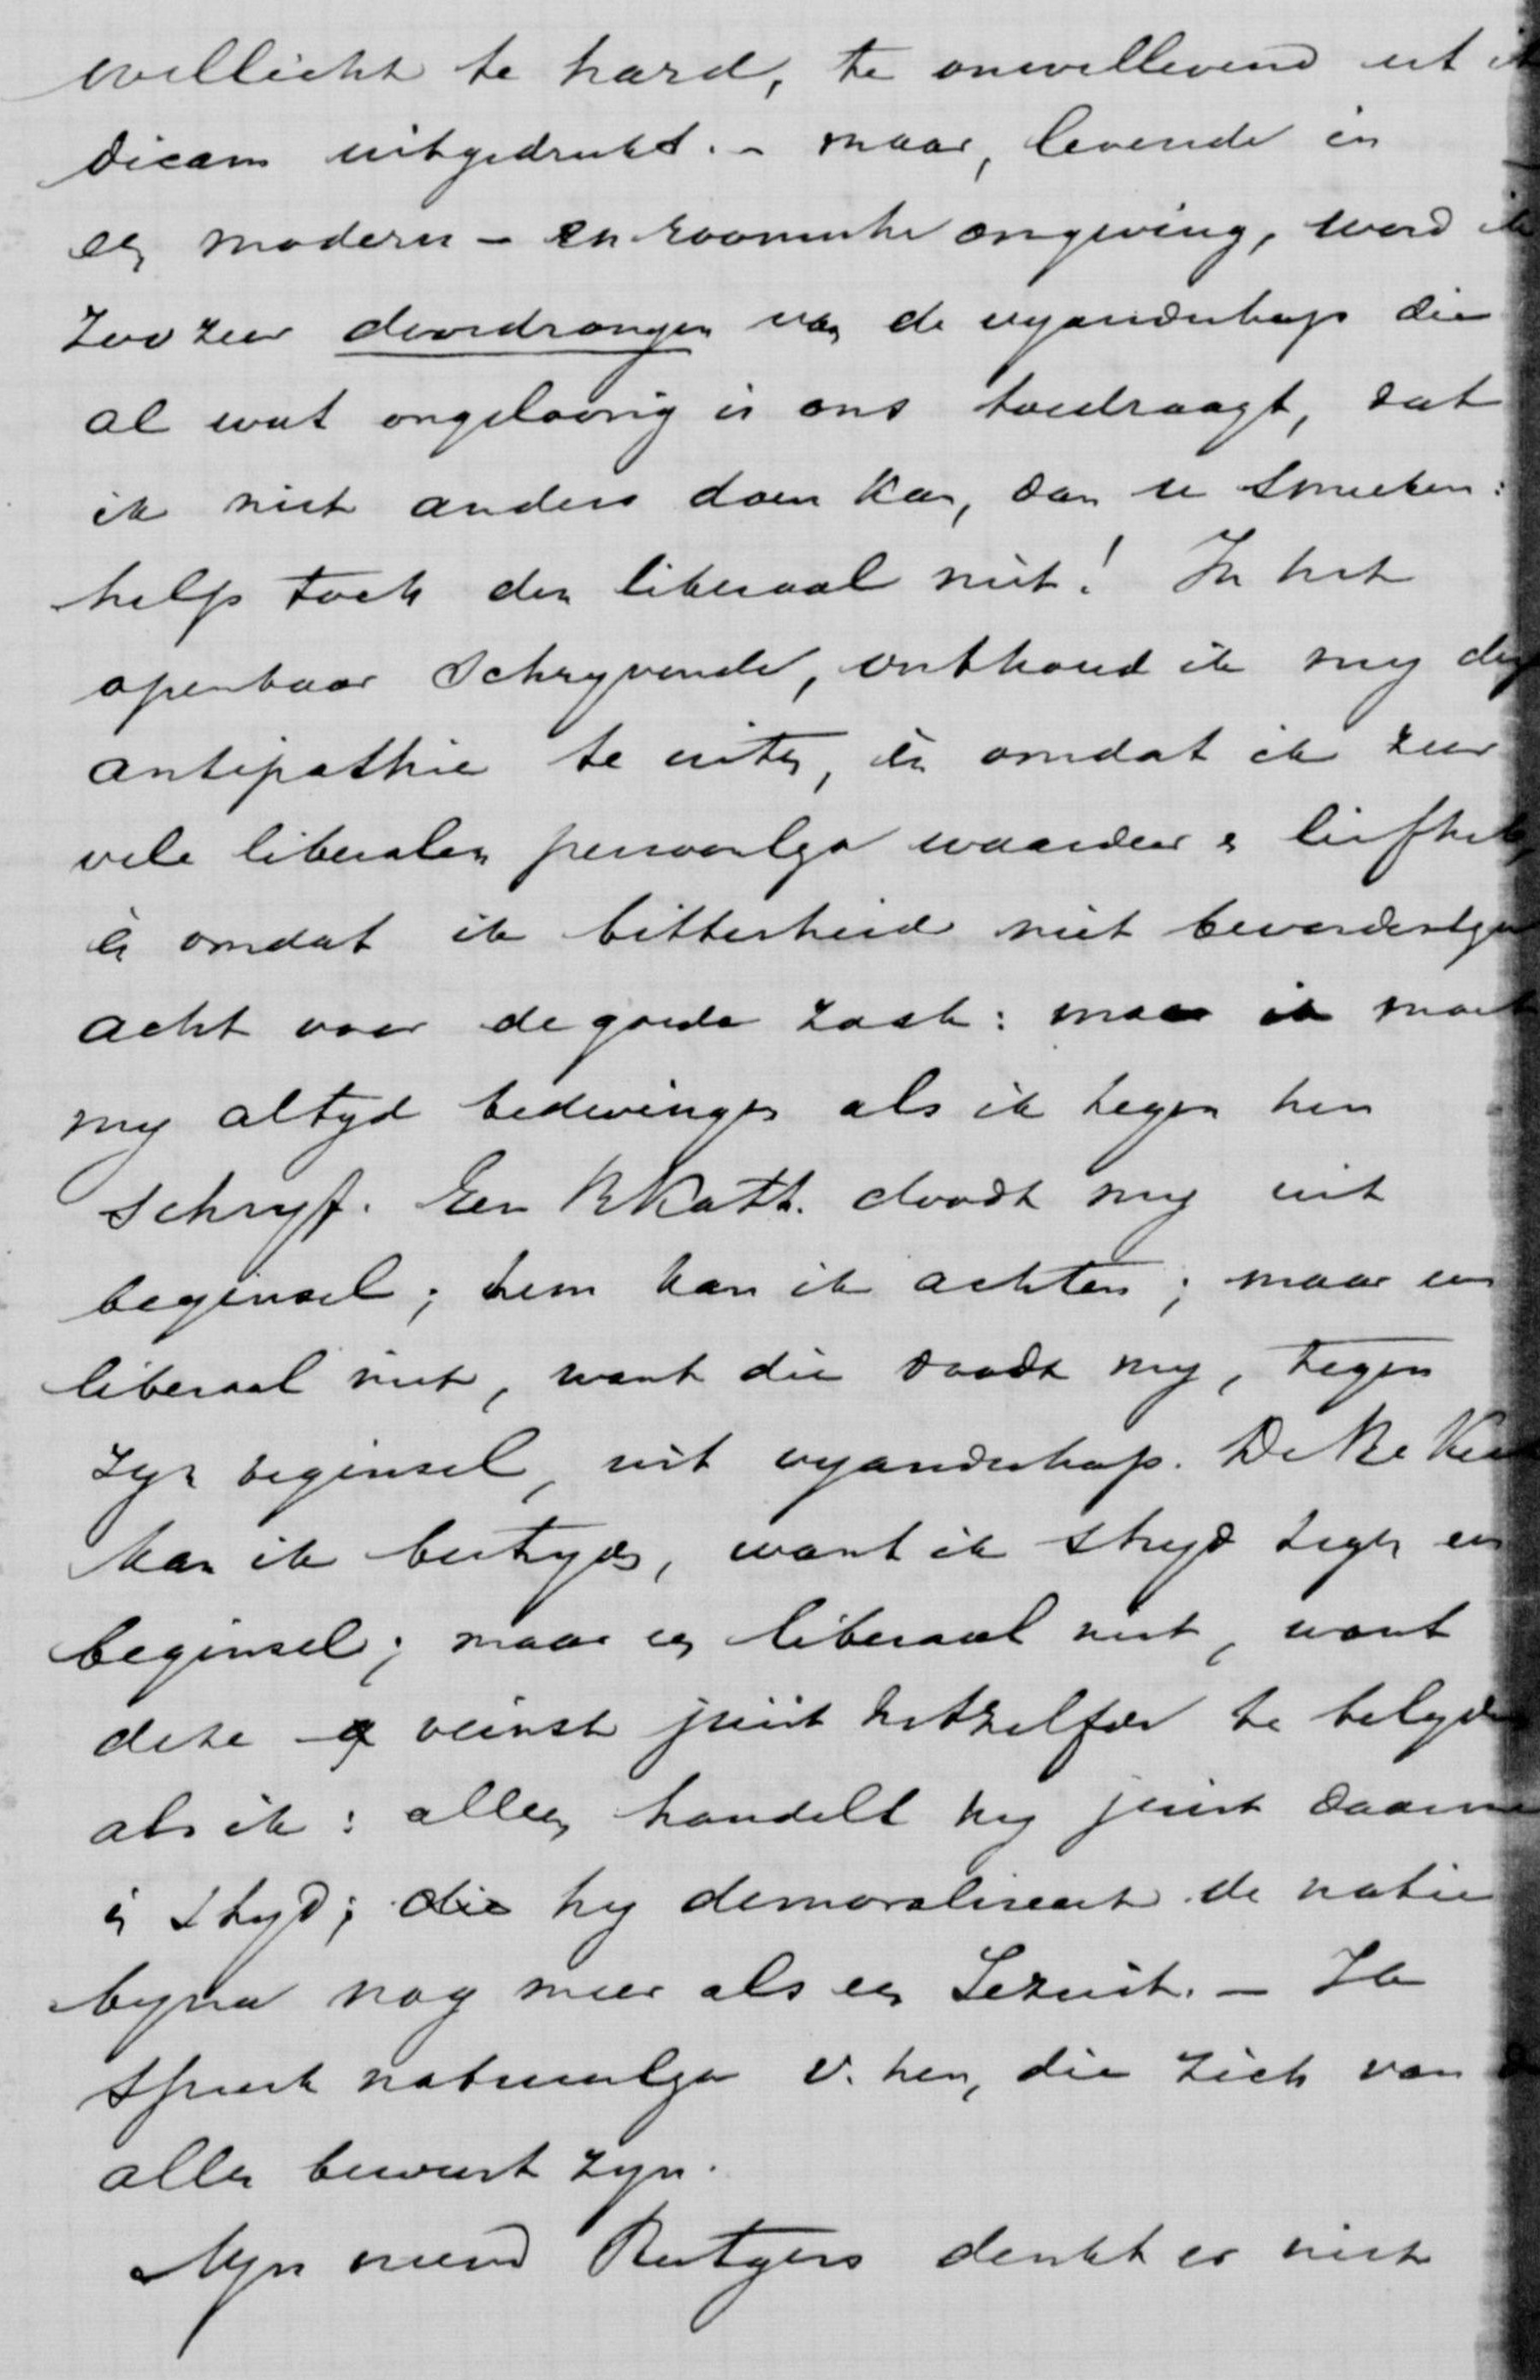 wellicht te hard, te onwellevend ut
dicam uitgedrukt. – maar, levende in
een modern – en roomsche omgeving, word ik
zoo zeer doordrongen van de vyandschap die
al wat ongeloovig is ons toedraagt, dat
ik niet anders doen kan, dan te smeeken:
help toch den liberaal niet! In het
openbaar schryvende, onthoud ik my die
antipathie te uiten, èn omdat ik zeer
vele liberalen persoonlyk waardeer en liefheb,
èn omdat ik bitterheid niet bevorderlyk
acht voor de goede zaak: maar ik moet
my altyd bedwingen als ik tegen hen
schryf. Een RKath. doodt my uit
beginsel; hem kan ik achten; maar een
liberaal niet, want die doodt my, tegen
zyn beginsel, uit vyandschap. De
kan ik bestryden, want ik stryd tegen een
beginsel; maar een liberaal niet, want
deze veinst juist hetzelfde te belyden
als ik: alleen handelt hy juist daarmee
in stryd; die hy demoraliseert de natie
byna nog meer als een Jezuit. – Ik
spreek natuurlyk v. hen, die zich van
alles bewust zyn.
Myn vriend Rutgers denkt er niet